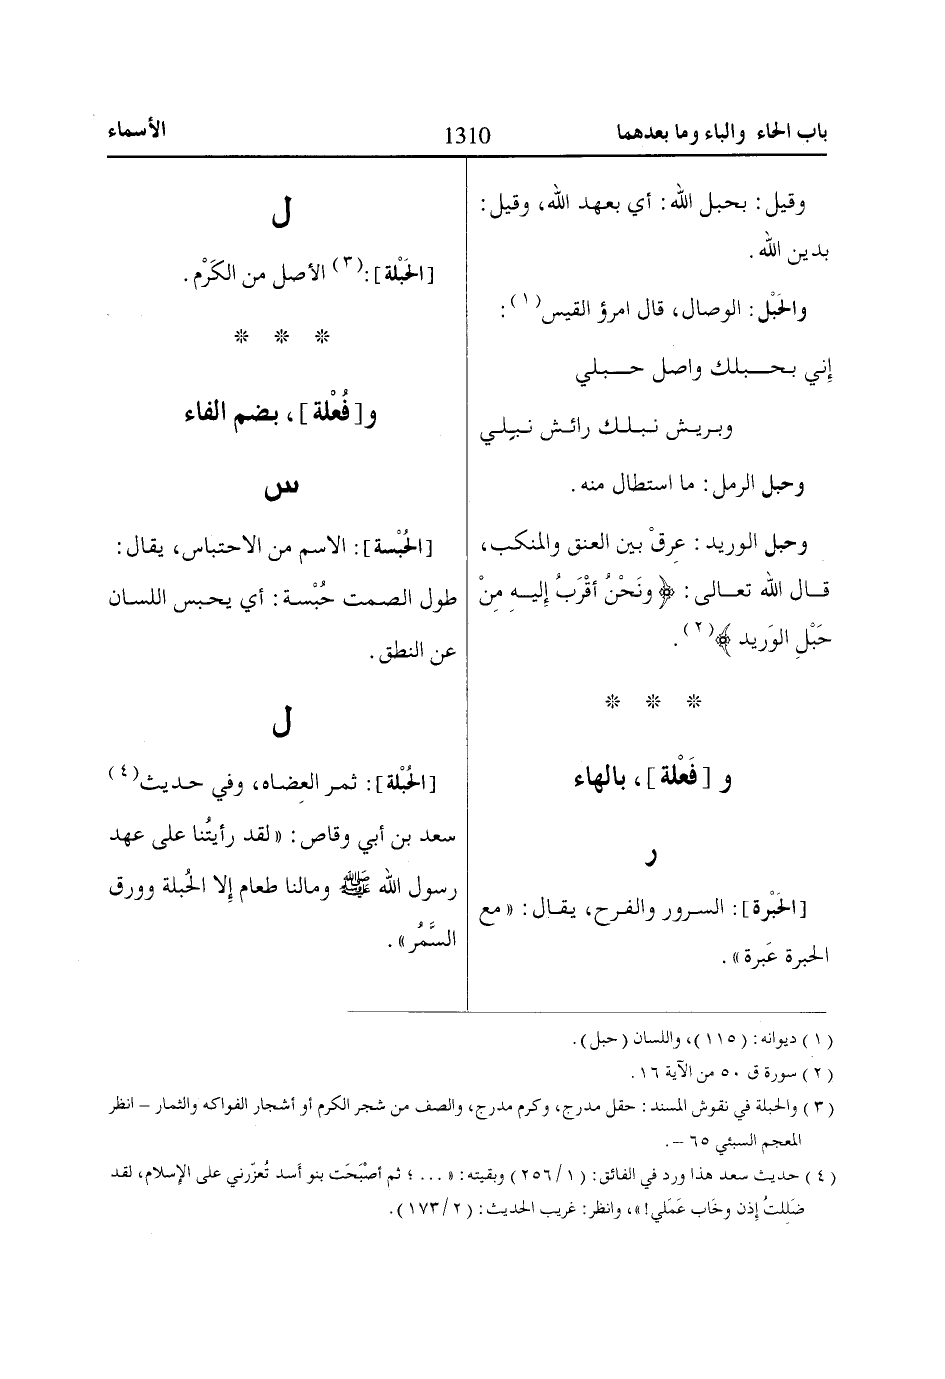 باب الحاء والباء وما بعدهما 1310 الأسماء
وقيل: بحبل الله: أي بعهد الله، وقيل:
بدين الله.
والحَبْل: الوصال، قال امرؤ القيس(١):
إني بحبلك واصل حبلي
وبريش نبلك رائش نبيلي
وحبل الرمل: ما استطال منه.
وحبل الوريد: عرقٌ بين العنق والمنكب،
قال الله تعالى: ﴿ونَحْنُ أقْرَبُ إليه مِنْ
حَبْلِ الوَرِيد﴾(٢).
* * *
و [فَعْلة]، بالهاء
ر
[الحَبْرة]: السرور والفرح، يقال: «مع
الحبرة عَبرة».
ل
[الحَبْلة]:(٣) الأصل من الكَرْم.
* * *
و[فُعْلة]، بضم الفاء
س
[الحُبْسة]: الاسم من الاحتباس، يقال:
طول الصمت حُبْسة: أي يحبس اللسان
عن النطق.
ل
[الحُبْلة]: ثمر العضاه، وفي حديث(٤)
سعد بن أبي وقاص: «لقد رأيتُنا على عهد
رسول الله ﷺ ومالنا طعام إلا الحُبلة وورق
السَّمُر».
(١) ديوانه: (١١٥)، واللسان (حبل).
(٢) سورة ق ٥٠ من الآية ١٦.
(٣) والحبلة في نقوش المسند: حقل مدرج، وكرم مدرج، والصف من شجر الكرم أو أشجار الفواكه والثمار – انظر
المعجم السبئي ٦٥ –.
(٤) حديث سعد هذا ورد في الفائق: (٢٥٦/١) وبقيته: «...؛ ثم أصْبَحَت بنو أسد تُعزّرني على الإسلام، لقد
ضَللتُ إذن وخَاب عَمَلي!»، وانظر: غريب الحديث: (١٧٣/٢).